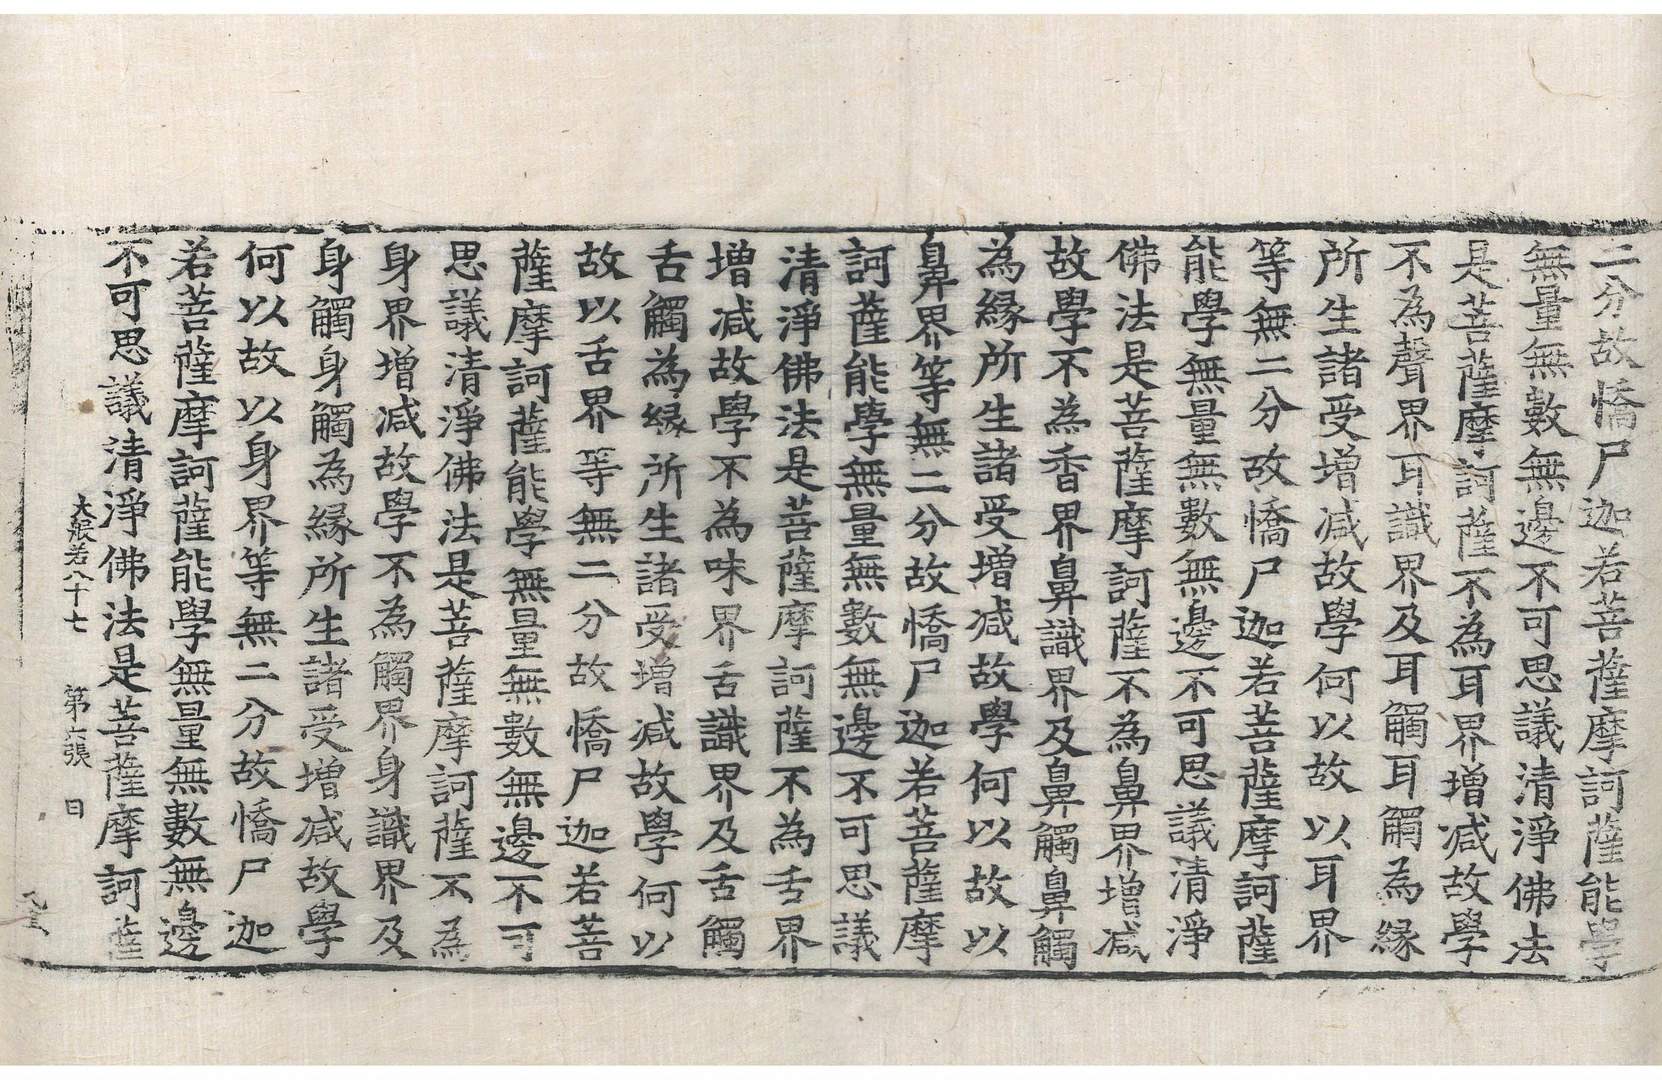 二分故憍尸迦若菩薩摩訶薩能學
無量無數無邊不可思議清淨佛法
是菩薩摩訶薩不為耳界增減故學
不為聲界耳識界及耳觸耳觸為緣
所生諸受增減故學何以故以耳界
等無二分故憍尸迦若菩薩摩訶薩
能學無量無數無邊不可思議清淨
佛法是菩薩摩訶薩不為鼻界增減
故學不為香界鼻識界及鼻觸鼻觸
為緣所生諸受增減故學何以故以
鼻界等無二分故憍尸迦若菩薩摩
訶薩能學無量無數無邊不可思議
清淨佛法是菩薩摩訶薩不為舌界
增減故學不為味界舌識界及舌觸
舌觸為緣所生諸受增減故學何以
故以舌界等無二分故憍尸迦若菩
薩摩訶薩能學無量無數無邊不可
思議清淨佛法是菩薩摩訶薩不為
身界增減故學不為觸界身識界及
身觸身觸為緣所生諸受增減故學
何以故以身界等無二分故憍尸迦
若菩薩摩訶薩能學無量無數無邊
不可思議清淨佛法是菩薩摩訶薩
大般若八十七 第六張 日